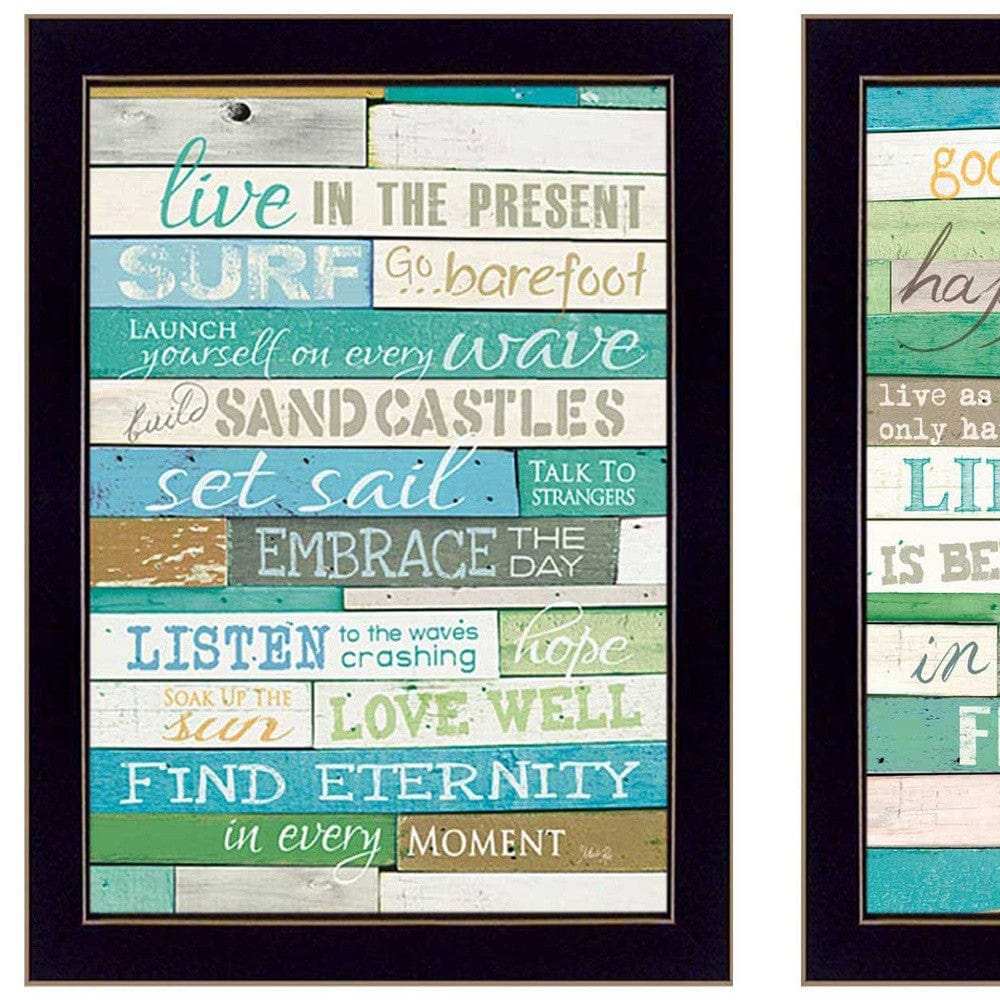 live IN THE PRESENT
SURF
Go
...barefoot
LAUNCH
yourself on every wave
build SANDCASTLES
set sail
TALK TO
STRANGERS
EMBRACE THE
DAY
LISTEN to the waves
crashing
hope
SOAK UP THE
sun
LOVE WELL
FIND ETERNITY
in every MOMENT
live as
only ha
IS BE
in